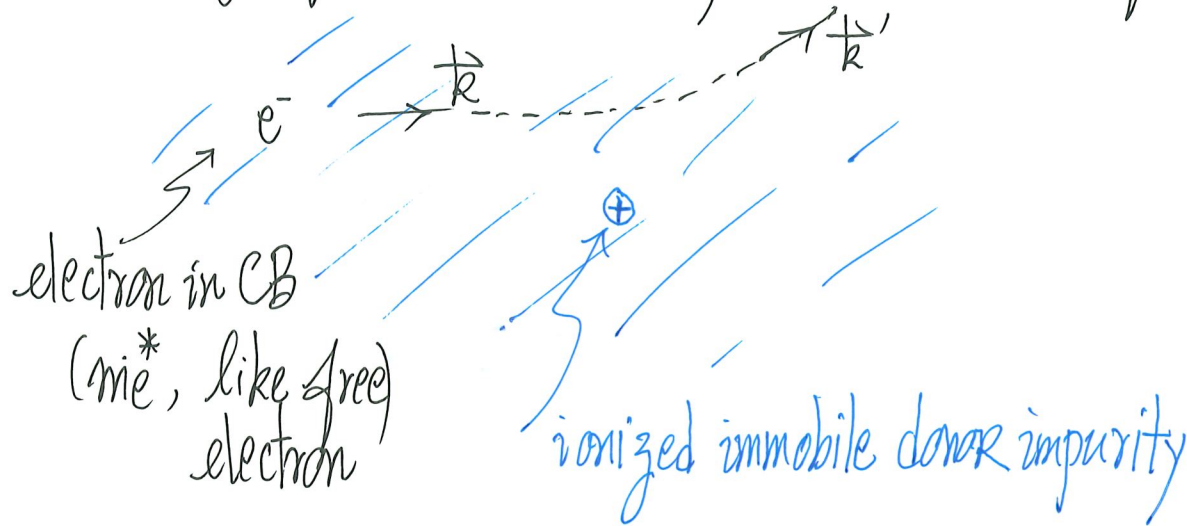 k⃗
k⃗'
e⁻
⊕
electron in CB
(me*, like free)
electron
ionized immobile donor impurity